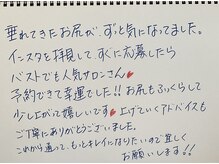 垂れてきたお尻が、ずっと気になってました。
インスタを拝見して すぐに応募したら
ベストでも人気サロンさん
予約できて幸運でした!! お尻もふっくらして
少し上がって嬉しいです 上げていくアドバイスも
ご丁寧にありがとうございました。
これから通って、もっとキレイになりたいので宜しく
お願いします!!